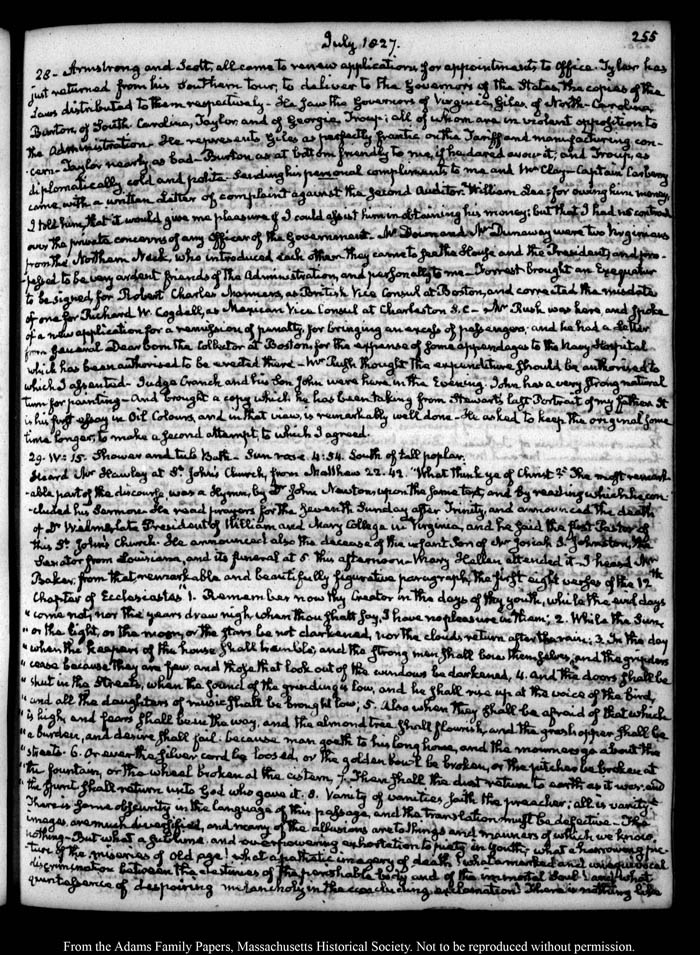 July 1827.
255
28- Armstrong and Scott, all come to renew applications for appointments to Office. Tyler has
just returned from his Southern tour, to deliver to the Governors of the States, the copies of the
Laws distributed to them respectively- He saw the Governors of Virginia, Giles, of North-Carolina,
Burton, of South Carolina, Taylor, and of Georgia, Troup; all of whom are in violent opposition to
the Administration- He represents Giles as perfectly frantic on the Tariff and manufacturing con-
-cern- Taylor nearly as bad- Burton as at bottom friendly to me, if he dared avow it; and Troup, as
diplomatically cold and polite. Sending his personal compliments to me and Mr Clay- Captain Carbery
came with a written Letter of complaint against the second Auditor William Lee; for owing him money.
I told him, that it would give me pleasure if I could assist him in obtaining his money; but that I had no controul
over the private concerns of any Officer of the Government- Mr Down and Mr Dunaway were two Virginians
from the Northern Neck, who introduced each other. they came to see the House and the President; and pro-
-fessed to be very ardent friends of the Administration, and personally to me- Forrest brought an Exequatur
to be signed, for Robert Charles Manners, as British Vice Consul at Boston, and corrected the misdate
of one for Richard W. Cogdell, as Mexican Vice Consul at Charleston S.C- Mr Rush was here, and spoke
of a new application for a remission of penalty, for bringing an excess of passengers; and he had a Letter
from General Dearborn the Collector at Boston for the expense of some appendages to the Navy Hospital
which has been authorised to be erected there- Mr Rush thought the expenditure should be authorised to
which I assented- Judge Cranch and his Son John were here in the Evening. John has a very strong natural
turn for painting- And brought a copy which he has been taking from Stewart's last Portrait of my father. It
is his first essay in Oil Colours, and in that view, is remarkably well done- He asked to keep the original some
time longer, to make a second attempt, to which I agreed.
29. IV: 15. Shower and tub Bath- Sun rose 4:54. South of tall poplar.
Heard Mr Hawley at St. John's Church, from Matthew 22. 42. "What think ye of Christ?" The most remark-
-able part of the discourse was a Hymn, by Dr John Newton, upon the same text, and by reading which he con-
-cluded his Sermon. He read prayers for the Seventh Sunday after Trinity, and announced the death
of Dr Wilmer, late President of William and Mary College in Virginia, and he said the first Pastor of
this St. John's Church. He announced also the decease of the infant Son of Mr Josiah S. Johnston, the
Senator from Louisiana, and its funeral at 5 this afternoon. Mary Hellen attended it- I heard Mr
Baker, from that remarkable and beautifully figurative paragraph, the first eight verses of the 12th
Chapter of Ecclesiastes 1. Remember now thy Creator in the days of thy youth, while the evil days
"come not, nor the years draw nigh when thou shalt say, I have no pleasure in them; 2. While the Sun,
"or the light, or the moon, or the stars be not darkened, nor the clouds return after the rain; 3. In the day
"when the keepers of the house shall tremble, and the strong men shall bow themselves, and the grinders
"cease because they are few, and those that look out of the windows be darkened, 4. And the doors shall be
"shut in the Streets, when the sound of the grinding is low, and he shall rise up at the voice of the bird,
"and all the daughters of music shall be brought low; 5. Also when they shall be afraid of that which
"is high, and fears shall be in the way, and the almond tree shall flourish, and the grasshopper shall be
"a burden, and desire shall fail. because man goeth to his long home, and the mourners go about the
"streets. 6. Or ever the silver cord be loosed, or the golden bowl be broken, or the pitcher be broken at
"the fountain, or the wheel broken at the cistern, 7. Then shall the dust return to earth as it was: and
"the spirit shall return unto God who gave it. 8. Vanity of vanities, saith the preacher; all is vanity."
There is some obscurity in the language of this passage, and the translation must be defective- The
images are much diversified, and many of the allusions are to things and manners of which we know
nothing- But what a sublime, and overpowering exhortation to piety in youth; what a harrowing pic-
-ture of the miseries of old age! what a pathetic imagery of death, what a marked and unequivocal
discrimination between the destinies of the perishable body and of the immortal Soul! and what
quintessence of despairing melancholy in the concluding exclamation! There is nothing like
From the Adams Family Papers, Massachusetts Historical Society. Not to be reproduced without permission.